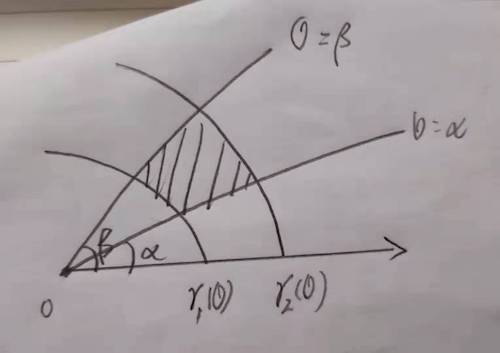 θ=β
θ=α
β
α
O
r₁(θ)
r₂(θ)